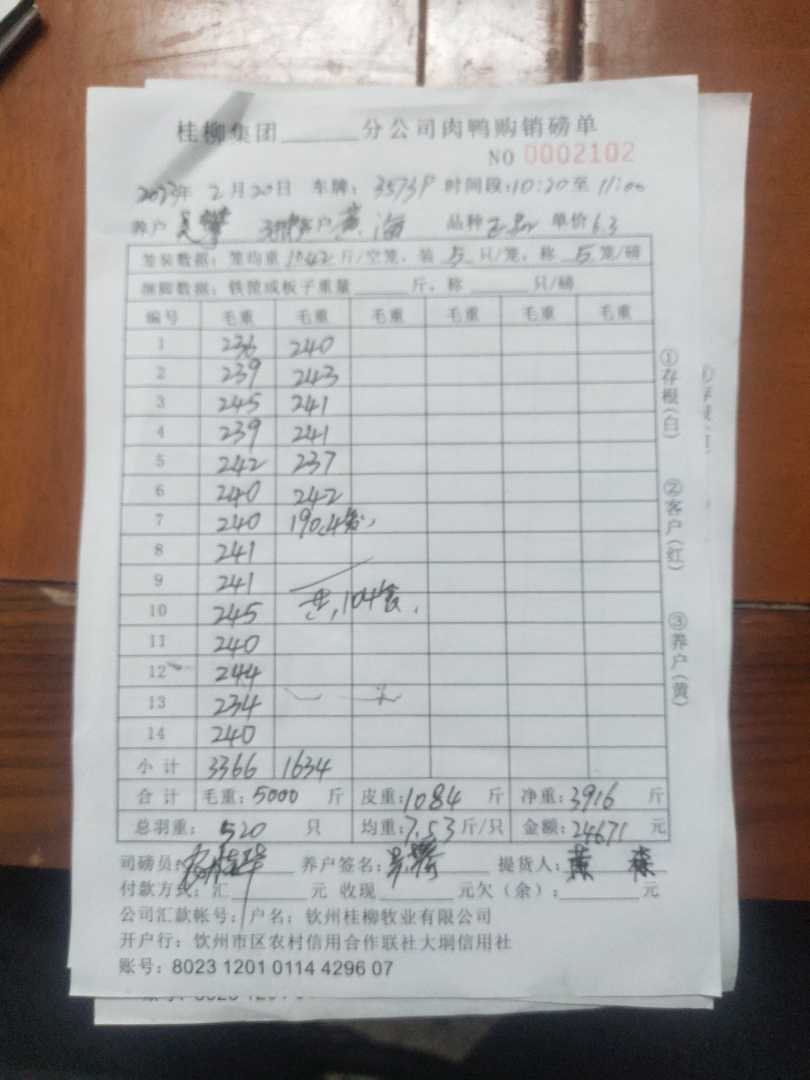 桂柳集团______分公司肉鸭购销磅单
NO 0002102
2023年 2月20日 车牌：3573P 时间段：10:20至 11:00
养户 吴 客户 黄 海 品种 正品 单价 6.3
笼装数据：笼均重 10.42 斤/空笼，装 5 只/笼，称 5 笼/磅
捆脚数据：铁筐或板子重量______斤，称______只/磅
编号 毛重 毛重 毛重 毛重 毛重 毛重
1 236 240
2 239 243
3 245 241
4 239 241
5 242 237
6 240 242
7 240 190.4
8 241
9 241
10 245 共，104
11 240
12 244
13 234
14 240
小计 3366 1634
合计 毛重：5000 斤 皮重：1084 斤 净重：3916 斤
总羽重：520 只 均重：7.53 斤/只 金额：24671 元
司磅员： 养户签名： 提货人：
付款方式：汇______元 收现______元欠（余）：______元
公司汇款帐号：户名：钦州桂柳牧业有限公司
开户行：钦州市区农村信用合作联社大垌信用社
账号：8023 1201 0114 4296 07
①存根（白）
②客户（红）
③养户（黄）